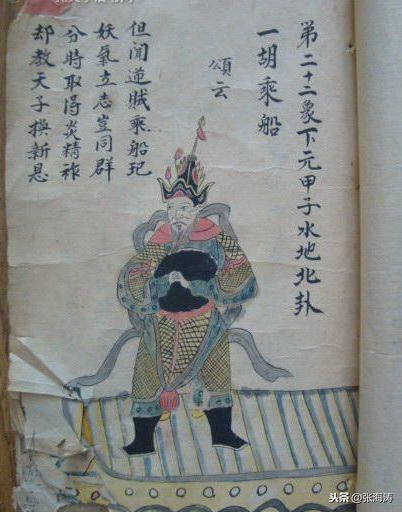 第二十二象下元甲子水地北卦
一胡乘船
頌云
但聞逆賊乘船玘
妖氣立志豈同群
分時取得炎精祚
却教天子新恩
头条 @张海涛